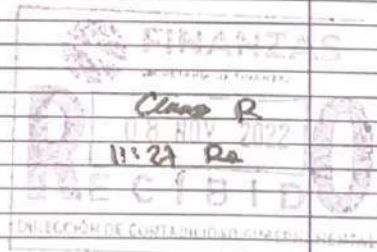 FINANZAS
SECRETARÍA DE FINANZAS
R
08 NOV 2022
11:27
RECIBIDO
DIRECCIÓN DE CONTABILIDAD GUBERNAMENTAL